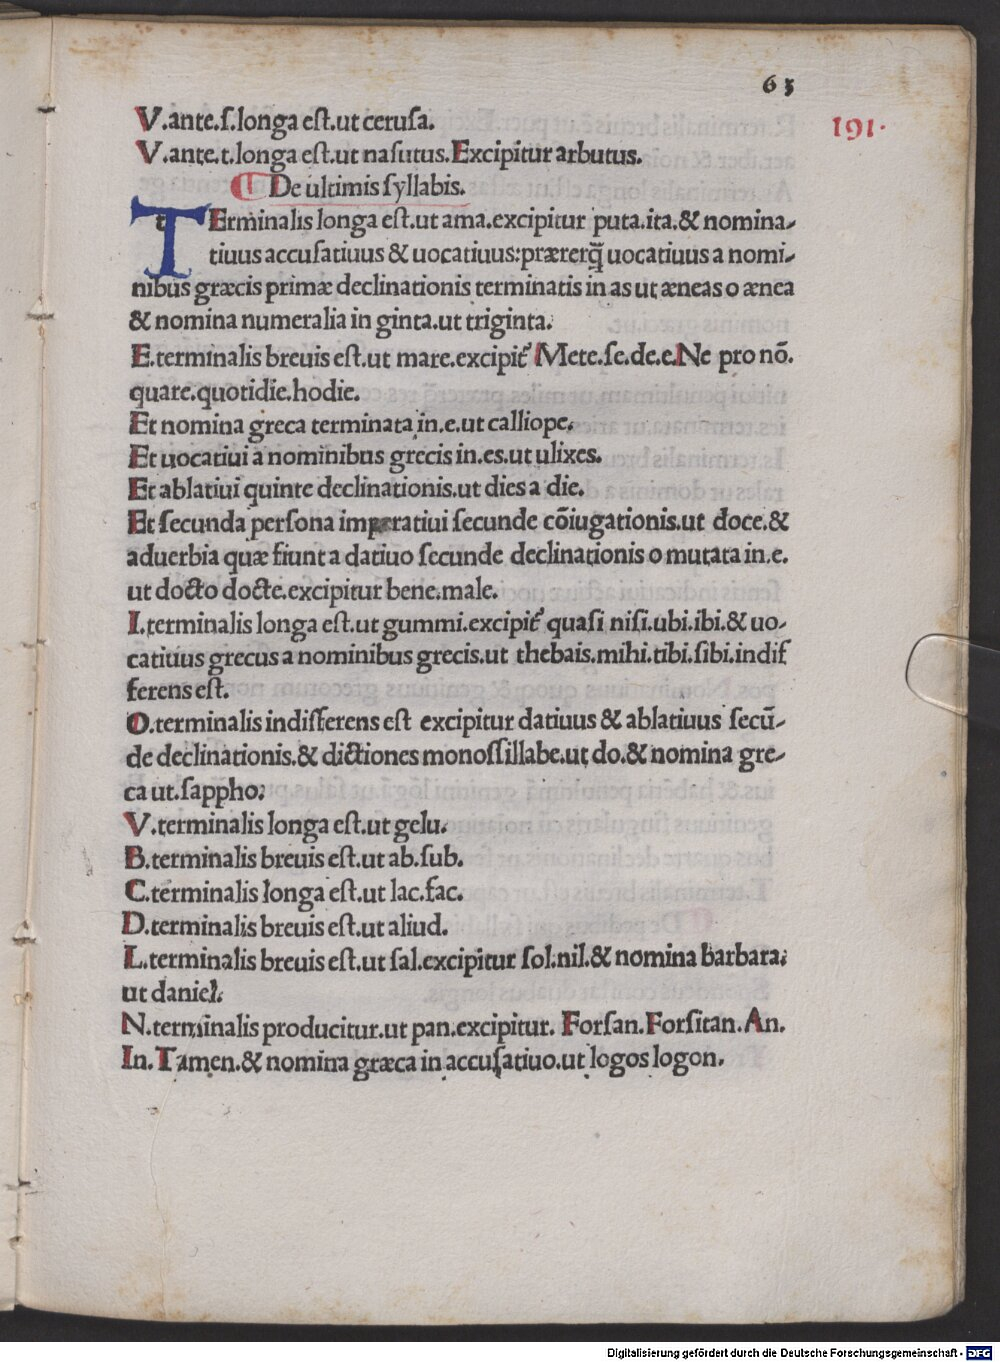 63
191.
V.ante.ſ.longa eſt.ut ceruſa.
V.ante.t.longa eſt.ut naſutus.Excipitur arbutus.
De ultimis ſyllabis.
TErminalis longa eſt.ut ama.excipitur puta.ita.& nomina-
tiuus accuſatiuus & uocatiuus:prærerq̃ uocatiuus a nomi-
nibus græcis primæ declinationis terminatis in as ut æneas o ænea
& nomina numeralia in ginta.ut triginta.
E.terminalis breuis eſt.ut mare.excipit᷑ Mete.ſe.de.e.Ne pro nō.
quare.quotidie.hodie.
Et nomina greca terminata in.e.ut calliope.
Et uocatiui a nominibus grecis in.es.ut ulixes.
Et ablatiui quinte declinationis.ut dies a die.
Et ſecunda perſona imperatiui ſecunde cōiugationis.ut doce.&
aduerbia quæ fiunt a datiuo ſecunde declinationis o mutata in.e.
ut docto docte.excipitur bene.male.
I.terminalis longa eſt.ut gummi.excipit᷑ quaſi niſi.ubi.ibi.& uo-
catiuus grecus a nominibus grecis.ut thebais.mihi.tibi.ſibi.indif
ferens eſt.
O.terminalis indifferens eſt excipitur datiuus & ablatiuus ſecū-
de declinationis.& dictiones monoſſillabe.ut do.& nomina gre-
ca ut.ſappho:
V.terminalis longa eſt.ut gelu.
B.terminalis breuis eſt.ut ab.ſub.
C.terminalis longa eſt.ut lac.fac.
D.terminalis breuis eſt.ut aliud.
L.terminalis breuis eſt.ut ſal.excipitur ſol.nil.& nomina barbara:
ut daniel.
N.terminalis producitur.ut pan.excipitur. Forſan.Forſitan.An.
In.Tamen.& nomina græca in accuſatiuo.ut logos logon.
Digitalisierung gefördert durch die Deutsche Forschungsgemeinschaft - DFG